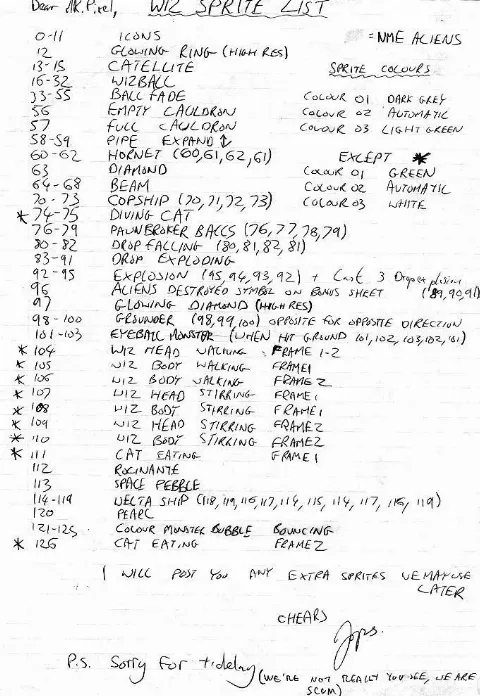 Dear Mr. Pixel, WIZ SPRITE LIST
0-11 ICONS = NME ALIENS
12 GLOWING RING (HIGH RES)
13-15 CATELLITE SPRITE COLOURS
16-32 WIZBALL
33-55 BALL FADE COLOUR 01 DARK GREY
56 EMPTY CAULDRON COLOUR 02 AUTOMATIC
57 FULL CAULDRON COLOUR 03 LIGHT GREEN
58-59 PIPE EXPAND ↕
60-62 HORNET (60,61,62,61) EXCEPT *
63 DIAMOND COLOUR 01 GREEN
64-68 BEAM COLOUR 02 AUTOMATIC
70-73 COPSHIP (70,71,72,73) COLOUR 03 WHITE
* 74-75 DIVING CAT
76-79 PAWNBROKER BALLS (76,77,78,79)
80-82 DROP FALLING (80,81,82,81)
83-91 DROP EXPLODING
92-95 EXPLOSION (95,94,93,92) + Last 3 Drop explosion
96 ALIENS DESTROYED SYMBOL ON BONUS SHEET (89,90,91)
97 GLOWING DIAMOND (HIGH RES)
98-100 GROUNDER (98,99,100) OPPOSITE FOR OPPOSITE DIRECTION
101-103 EYEBALL MONSTER (WHEN HIT GROUND 101,102,103,102,101)
* 104 WIZ HEAD WALKING FRAME 1-2
* 105 WIZ BODY WALKING FRAME 1
* 106 WIZ BODY WALKING FRAME 2
* 107 WIZ HEAD STIRRING FRAME 1
* 108 WIZ BODY STIRRING FRAME 1
* 109 WIZ HEAD STIRRING FRAME 2
* 110 WIZ BODY STIRRING FRAME 2
* 111 CAT EATING FRAME 1
112 ROCINANTE
113 SPACE PEBBLE
114-119 DELTA SHIP (118,119,116,117,114,115,114,117,116,119)
120 PEARL
121-125 COLOUR MONSTER BUBBLE BOUNCING
* 126 CAT EATING FRAME 2
I WILL POST YOU ANY EXTRA SPRITES WE MAY USE
LATER
CHEARS
Jops.
P.S. Sorry For t'delay (WE'RE NOT REALLY YOU SEE, WE ARE
SCUM)